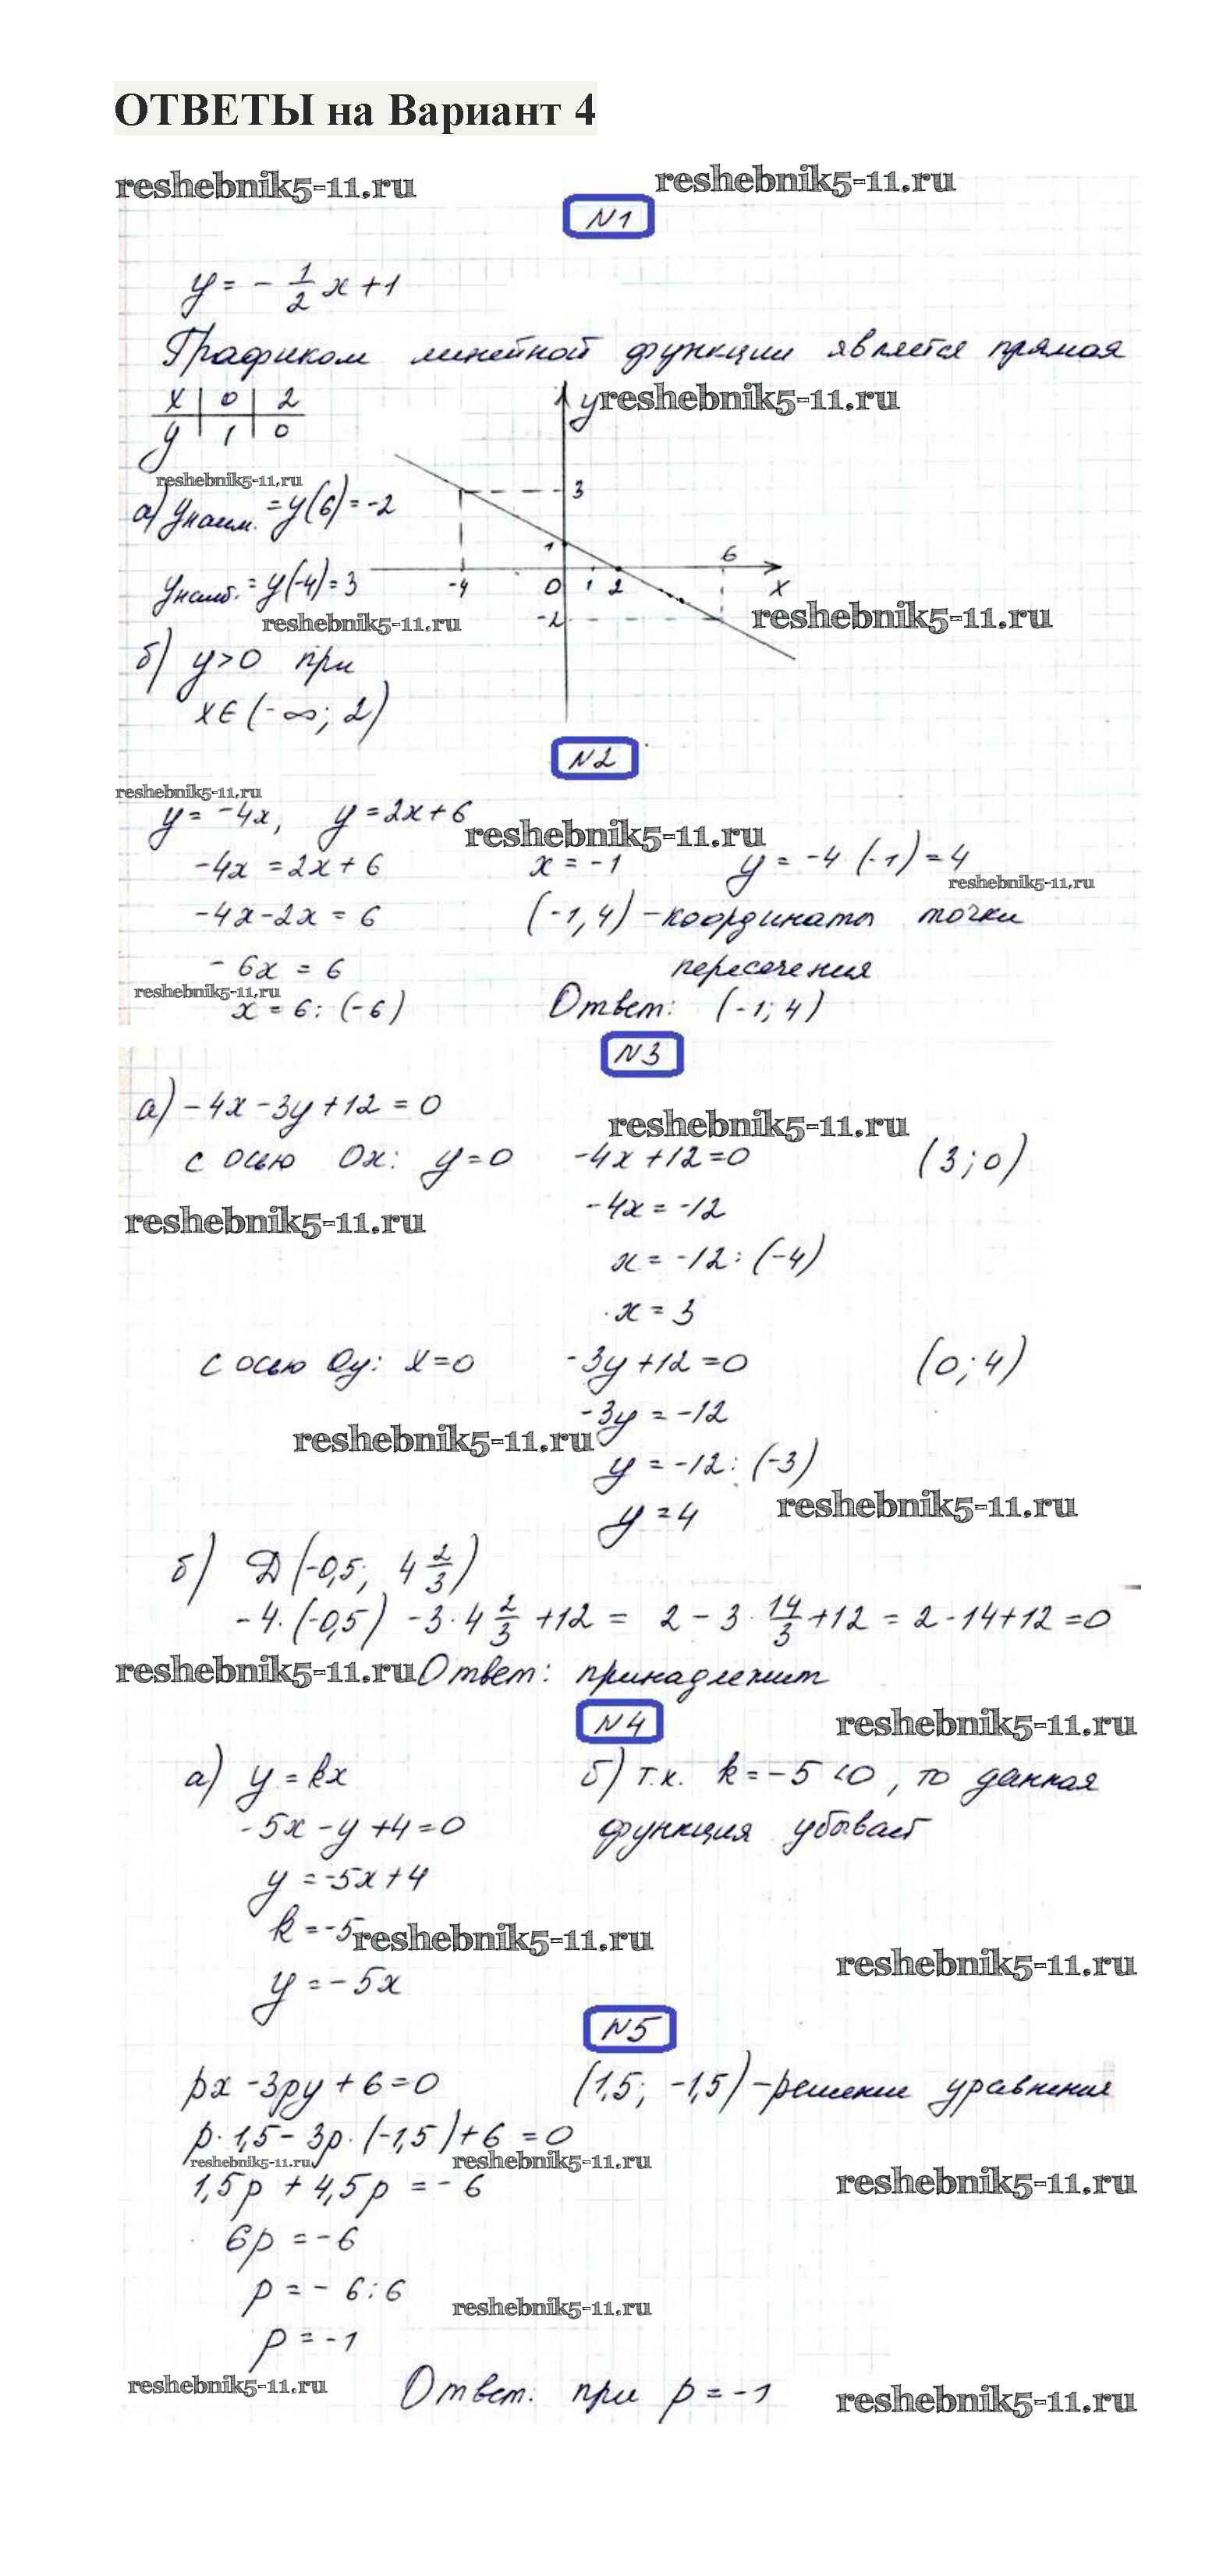 ОТВЕТЫ на Вариант 4
reshebnik5-11.ru reshebnik5-11.ru
N1
y = - 1/2 x + 1
Графиком линейной функции является прямая
x | 0 | 2
y | 1 | 0
y reshebnik5-11.ru
reshebnik5-11.ru
3
а) yнаим. = y(6) = -2
1
6
-4 0 1 2 x
yнаиб. = y(-4) = 3
-2
reshebnik5-11.ru reshebnik5-11.ru
б) y>0 при
x∈(-∞; 2)
N2
reshebnik5-11.ru
y = -4x, y = 2x+6
reshebnik5-11.ru
-4x = 2x + 6 x = -1 y = -4·(-1) = 4
reshebnik5-11.ru
-4x-2x = 6 (-1, 4) - координаты точки
-6x = 6 пересечения
reshebnik5-11.ru
x = 6 : (-6) Ответ: (-1; 4)
N3
а) -4x -3y +12 = 0
reshebnik5-11.ru
с осью Ox: y=0 -4x +12=0 (3; 0)
-4x = -12
reshebnik5-11.ru
x = -12 : (-4)
x = 3
с осью Oy: x=0 -3y+12=0 (0; 4)
-3y = -12
reshebnik5-11.ru
y = -12 : (-3)
reshebnik5-11.ru
y = 4
б) D(-0,5; 4 2/3)
-4·(-0,5) -3·4 2/3 +12 = 2 - 3· 14/3 +12 = 2 -14+12 =0
reshebnik5-11.ru Ответ: принадлежит
N4 reshebnik5-11.ru
а) y = kx б) т.к. k = -5 <0, то данная
-5x - y +4 =0 функция убывает
y = -5x+4
k = -5
reshebnik5-11.ru
reshebnik5-11.ru
y = -5x
N5
px -3py + 6 =0 (1,5; -1,5) - решение уравнения
p·1,5 - 3p·(-1,5)+6 =0
reshebnik5-11.ru reshebnik5-11.ru
1,5p + 4,5p = -6
reshebnik5-11.ru
6p = -6
p = -6:6
reshebnik5-11.ru
p = -1
reshebnik5-11.ru
Ответ: при p = -1
reshebnik5-11.ru